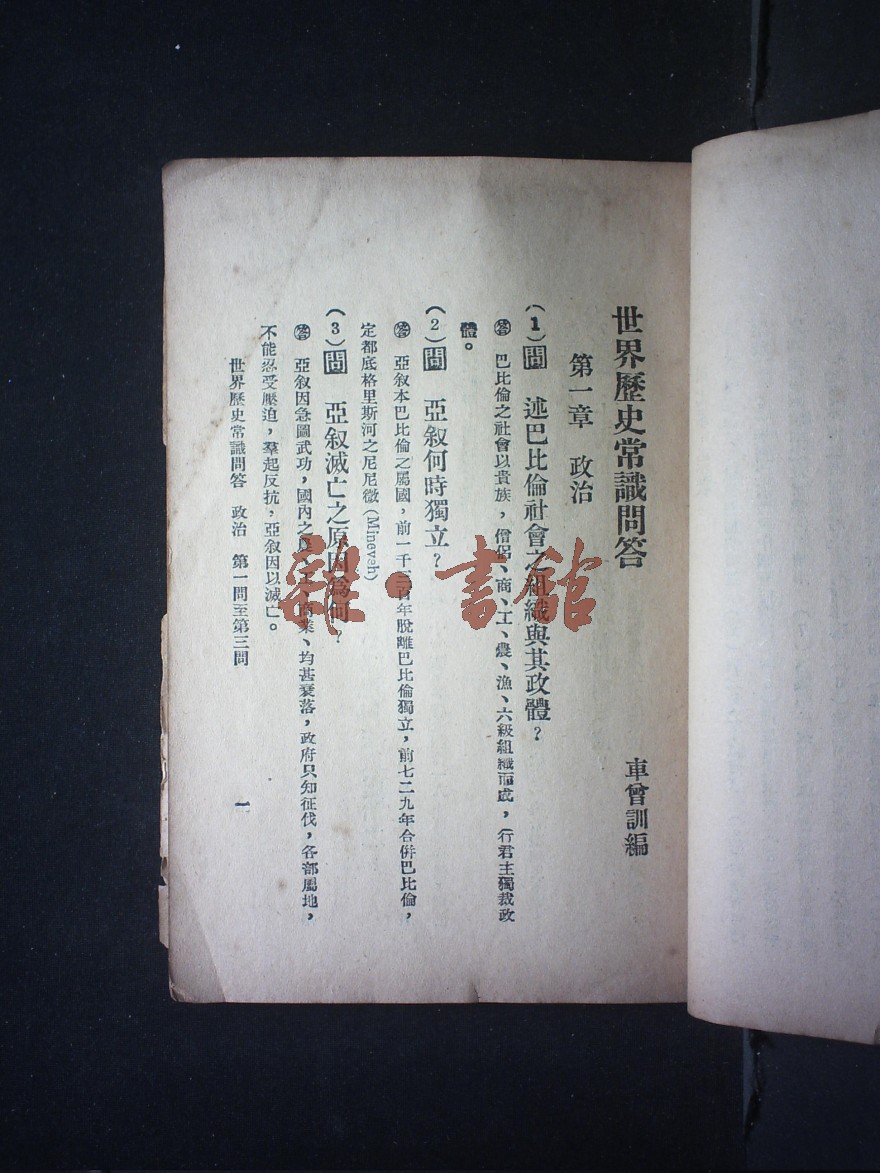 世界歷史常識問答
車曾訓編
第一章 政治
(1)問 述巴比倫社會之組織與其政體?
答 巴比倫之社會以貴族,僧侶、商、工、農、漁、六級組織而成,行君主獨裁政
體。
(2)問 亞叙何時獨立?
答 亞叙本巴比倫之屬國,前一千百年脫離巴比倫獨立,前七二九年合併巴比倫,
定都底格里斯河之尼尼微(Mineveh)
(3)問 亞叙滅亡之原因爲何?
答 亞叙因急圖武功,國內之農、工、商業、均甚衰落,政府只知征伐,各部屬地,
不能忍受壓迫,羣起反抗,亞叙因以滅亡。
世界歷史常識問答 政治 第一問至第三問
一
雜·書館